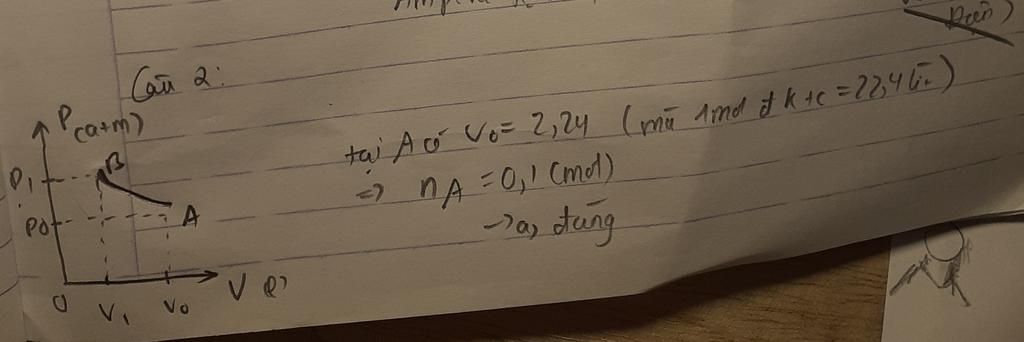 Câu 2:
P(atm)
B
P1
P0
A
0
V1
V0
V (l)
tại A có V0 = 2,24 (mà 1mol ở đktc = 22,4 lít)
=> nA = 0,1 (mol)
-> a, đúng